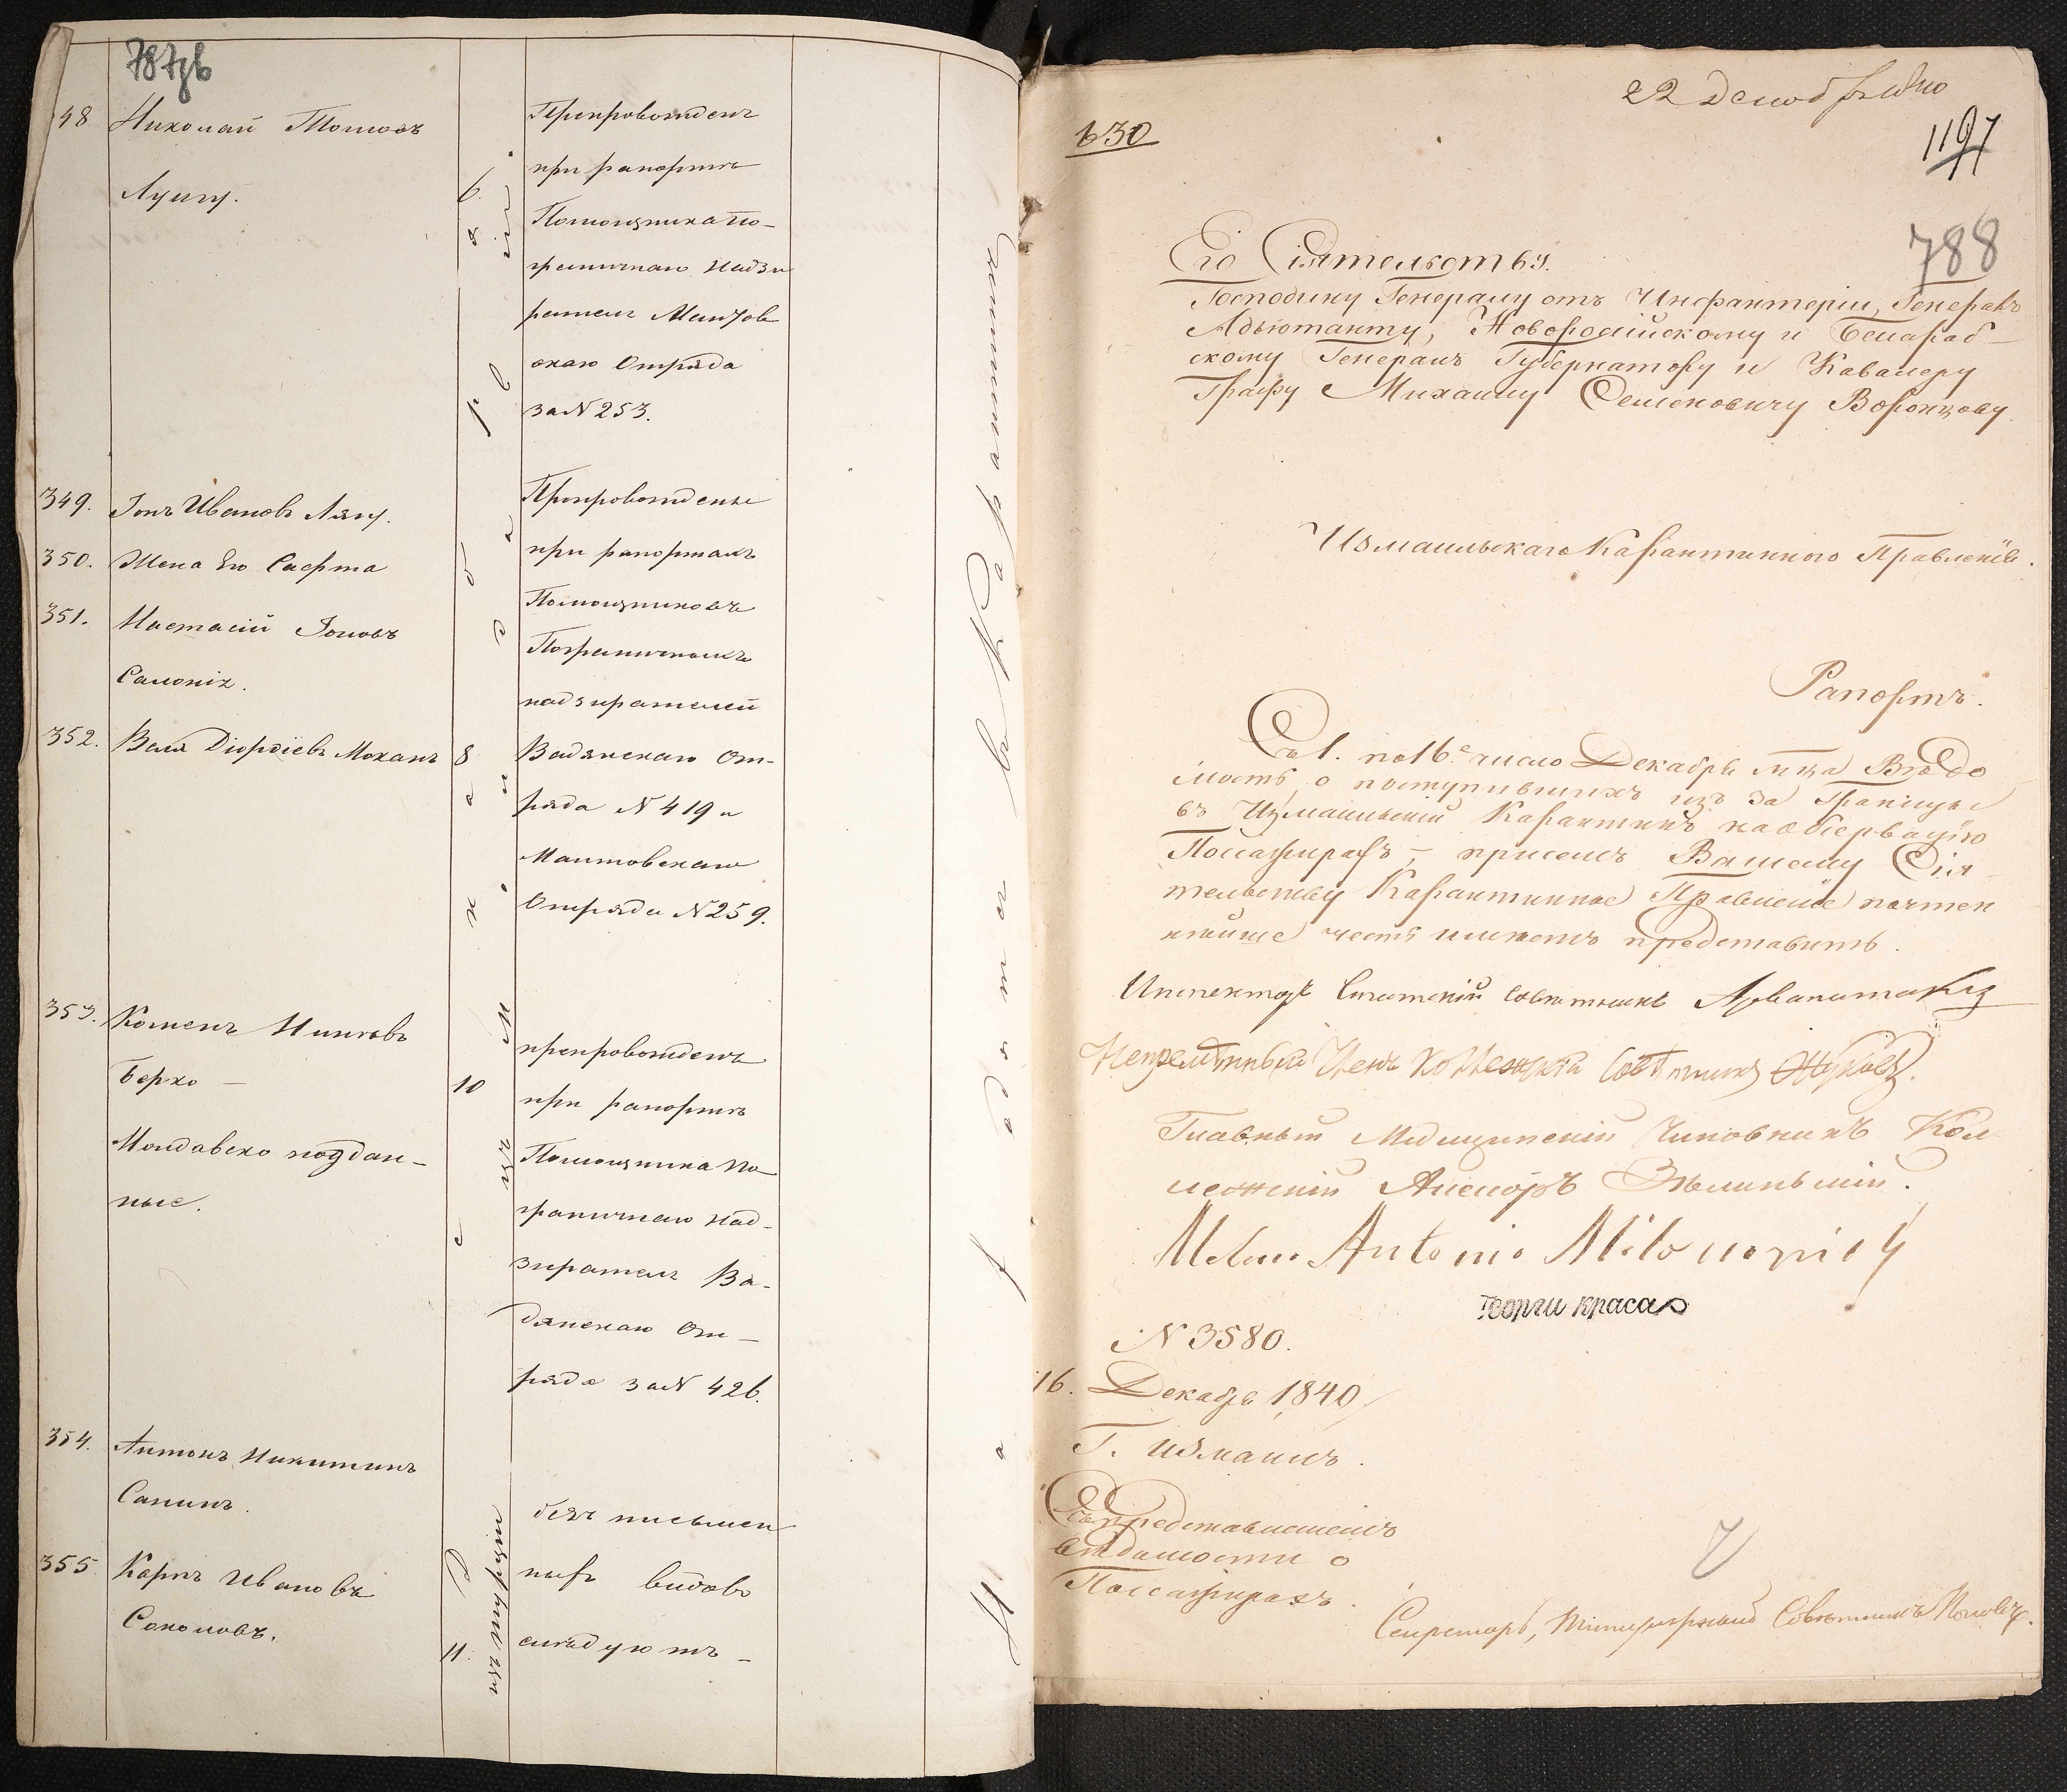 787об
348 Николай Томовъ
Лунг.
6.
Препровожденъ
при рапортѣ
Помощника по-
граничнаго Надзи
рателя Мантов
скаго Отряда
за N 253.
349. Іонъ Ивановъ Лянг.
350. Жена Его Сафта
351. Настасій Іоновъ
Салоніх.
352. Валя Діордіевъ Моканъ
8
Препровождены
при рапортахъ
Помощниковъ
Пограничныхъ
надзирателей
Вадянскаго От-
ряда N 419 и
Мантовскаго
Отряда N 259.
353. Коменъ
Берко —
Молдавско поддан-
ные.
10
препровожденъ
при рапортѣ
Помощника по
граничнаго над-
зирателя Ва-
дянскаго От-
ряда за N 426.
354. Антонъ Никитинъ
Санинъ.
355 Карпъ Ивановъ
Соколовъ.
11.
безъ письмен
ныхъ видовъ
слѣдуютъ —
декабря
изъ Молдавіи.
изъ Турціи
въ Карантинѣ
22 Декабря
630
1197
788
Его Сіятельству.
Господину Генералу отъ Инфантеріи, Генералъ
Адъютанту, Новороссійскому и Бессараб-
скому Генералъ Губернатору и Кавалеру
Графу Михаилу Семеновичу Воронцову.
Измаильскаго Карантинного Правленія.
Рапортъ.
Съ 1. по 16е число Декабря м-ца Вѣдо
мость о поступившихъ изъ за Границы
въ Измаильскій Карантинъ на обсервацію
Пассажирахъ, — при семъ Вашему Сія
тельству Карантинное Правленіе почтен
нѣйше честь имѣетъ представить.
Инспекторъ Статскій совѣтникъ Арванитаки
Непремѣнный Членъ Коллежскій Совѣтникъ
Главный Медицинскій Чиновникъ Кол-
лежскій Ассесоръ
Antonio
Георги Краса
N 3580.
16. Декабря 1840
Г. Измаилъ.
Съ представленіемъ
вѣдомости о
Пассажирахъ.
Секретарь, Титулярный Совѣтникъ Поповъ.